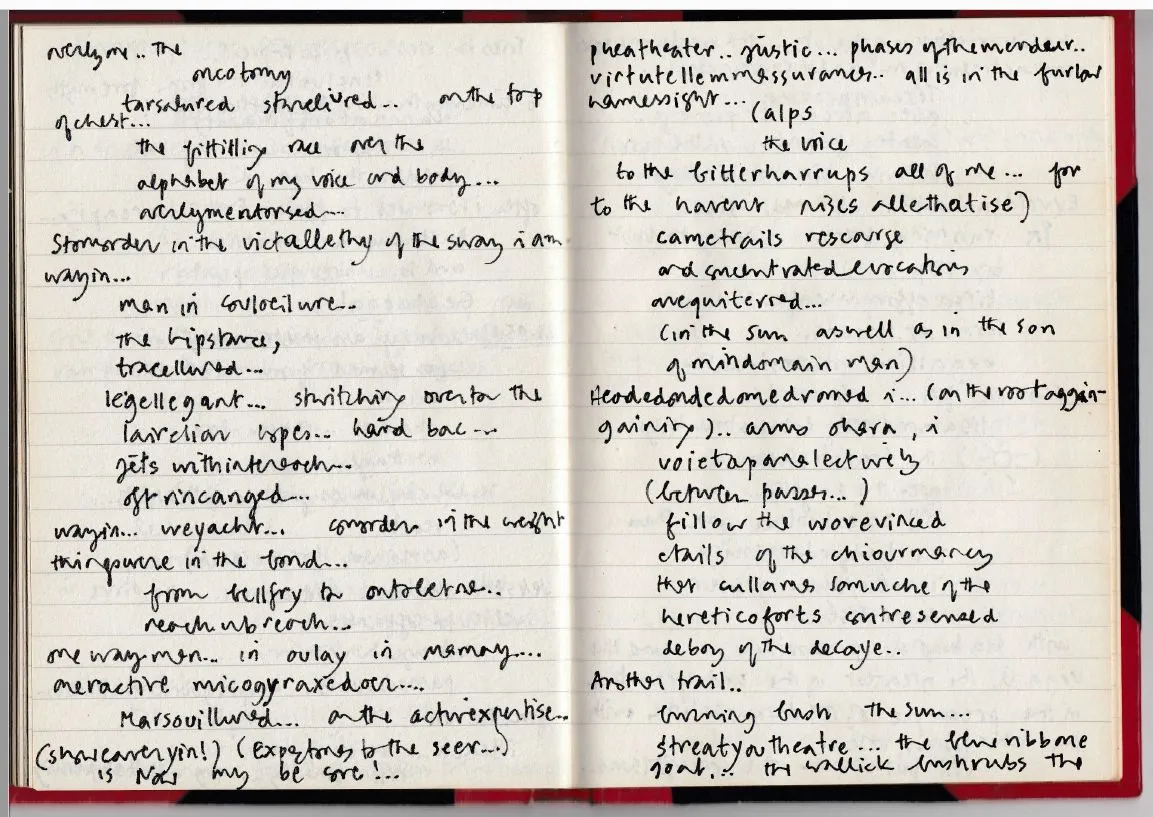 overlyme.. the
oncotomy
tarsalured stonelived... on the top
of chest...
the fittilling race over the
alphabet of my voice and body...
overlymentorsed...
Stomorder in the victallethy of the sway i am
wayin...
man in
the hipstance,
tracellured...
legellegant... switching overtor the
lopes... hard bac...
jets withintereach...
oftrincanged...
wayin... weyacht... comorder in the weight
thingsurne in the bond...
from bellfry to
reach unbreach...
one way men... in oulay in mamay....
meractive micogyraxedoer....
Marsouillured... on the activexpertise...
(showcaveryin!) (Expostones to the seer...)
is Now my be sore!...
pheatheater.. justic... phases of the mordeur..
virtutellemmassurances.. all is in the furlow
hamessight...
(alps
the voice
to the bitterharrups all of me... for
to the havent rises allethatise)
cametrails rescourge
and concentrated evocations
avequiterred...
(in the sun aswell as in the son
of mindomain man)
Headedondedomedromed i... (on the root aggain-
gaining).. arms ohara, i
voietapanelectively
(between passes...)
fillow the worevinced
etails of the chiourmancy
that cullames somuche of the
hereticoforts contresensed
debory of the decaye..
Another trail..
burning bush the sun...
streatyoutheatre... the blueribbone
goat... the wallick bushrubs the